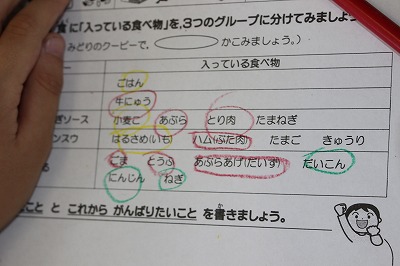 食に「入っている食べ物」を,3つのグループに分けてみましょう
みどりのクーピーで、 かこみましょう。)
入っている食べ物
ごはん
牛にゅう
ぎソース 小麦こ あぶら とり肉 たまねぎ
ンスウ はるさめ(いも) ハム(ぶた肉) たまご きゅうり
る ごま とうふ あぶらあげ(だいず) だいこん
にんじん ねぎ
こと と これから がんばりたいこと を書きましょう。